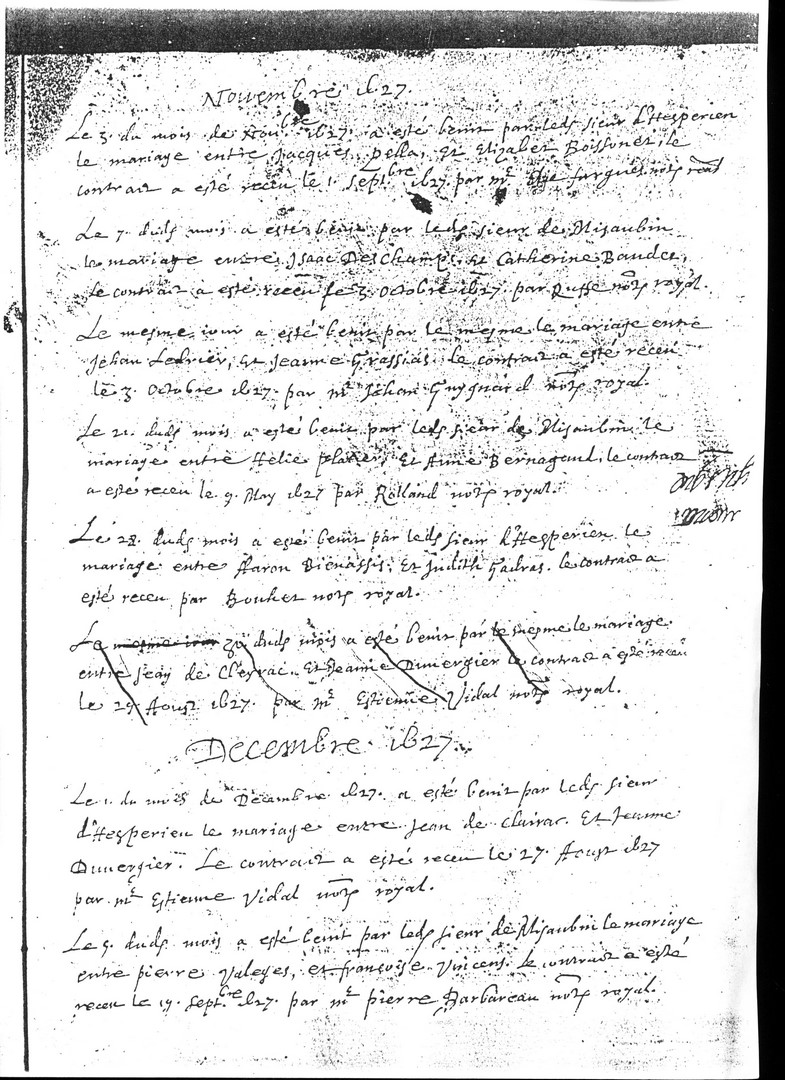 Novembre 1627.
Le 3. du mois de Nou.bre 1627. a esté benit par leds sieur d'Hesperien
le mariage entre Jacques Pella, Et Elizabet Boissonet, le
contract a esté receu le 1. Sept.bre 1627. par mᵉ notʳᵉ
Le 7. duds mois a esté benit par leds sieur de Misaubin
le mariage entre Isaac DesChamps, Et Catherine Baudet,
le contract a esté receu le 3. Octobre 1627. par Russe notʳᵉ royal.
Le mesme iour a esté benit par le mesme le mariage entre
Jehan Ledrier, Et Jeanne Grassias. le contract a esté receu
le 3. Octobre 1627. par mᵉ Jehan Guygnard notʳᵉ royal.
Le 21. duds mois a esté benit par leds sieur de Misaubin, le
mariage entre Helie Et Anne Bernagaud, le contract
a esté receu le 9. May 1627 par Rolland notʳᵉ royal.
Le 28. duds mois a esté benit par leds sieur d'Hesperien le
mariage entre Aaron Bienassis, Et Judith Gadras. le contract a
esté receu par Bouhet notʳᵉ royal.
Le mesme iour duds mois a esté benit par le mesme le mariage
entre Jean de Cleyrac, Et Jeanne Duvergier le contract a esté receu
le 29. Aoust 1627. par mᵉ Estienne Vidal notʳᵉ royal.
Decembre 1627.
Le 1. du mois de Decembre 1627. a esté benit par leds sieur
d'Hesperien le mariage entre Jean de Clairac. Et Jeanne
Duvergier. Le contract a esté receu le 27. Aoust 1627
par mᵉ Estienne Vidal notʳᵉ royal.
Le 5. duds mois a esté benit par leds sieur de Misaubin le mariage
entre pierre Valeyes, et françoise Vincens. le contract a esté
receu le 19. Sept.bre 1627. par mᵉ pierre Barbareau notʳᵉ royal.